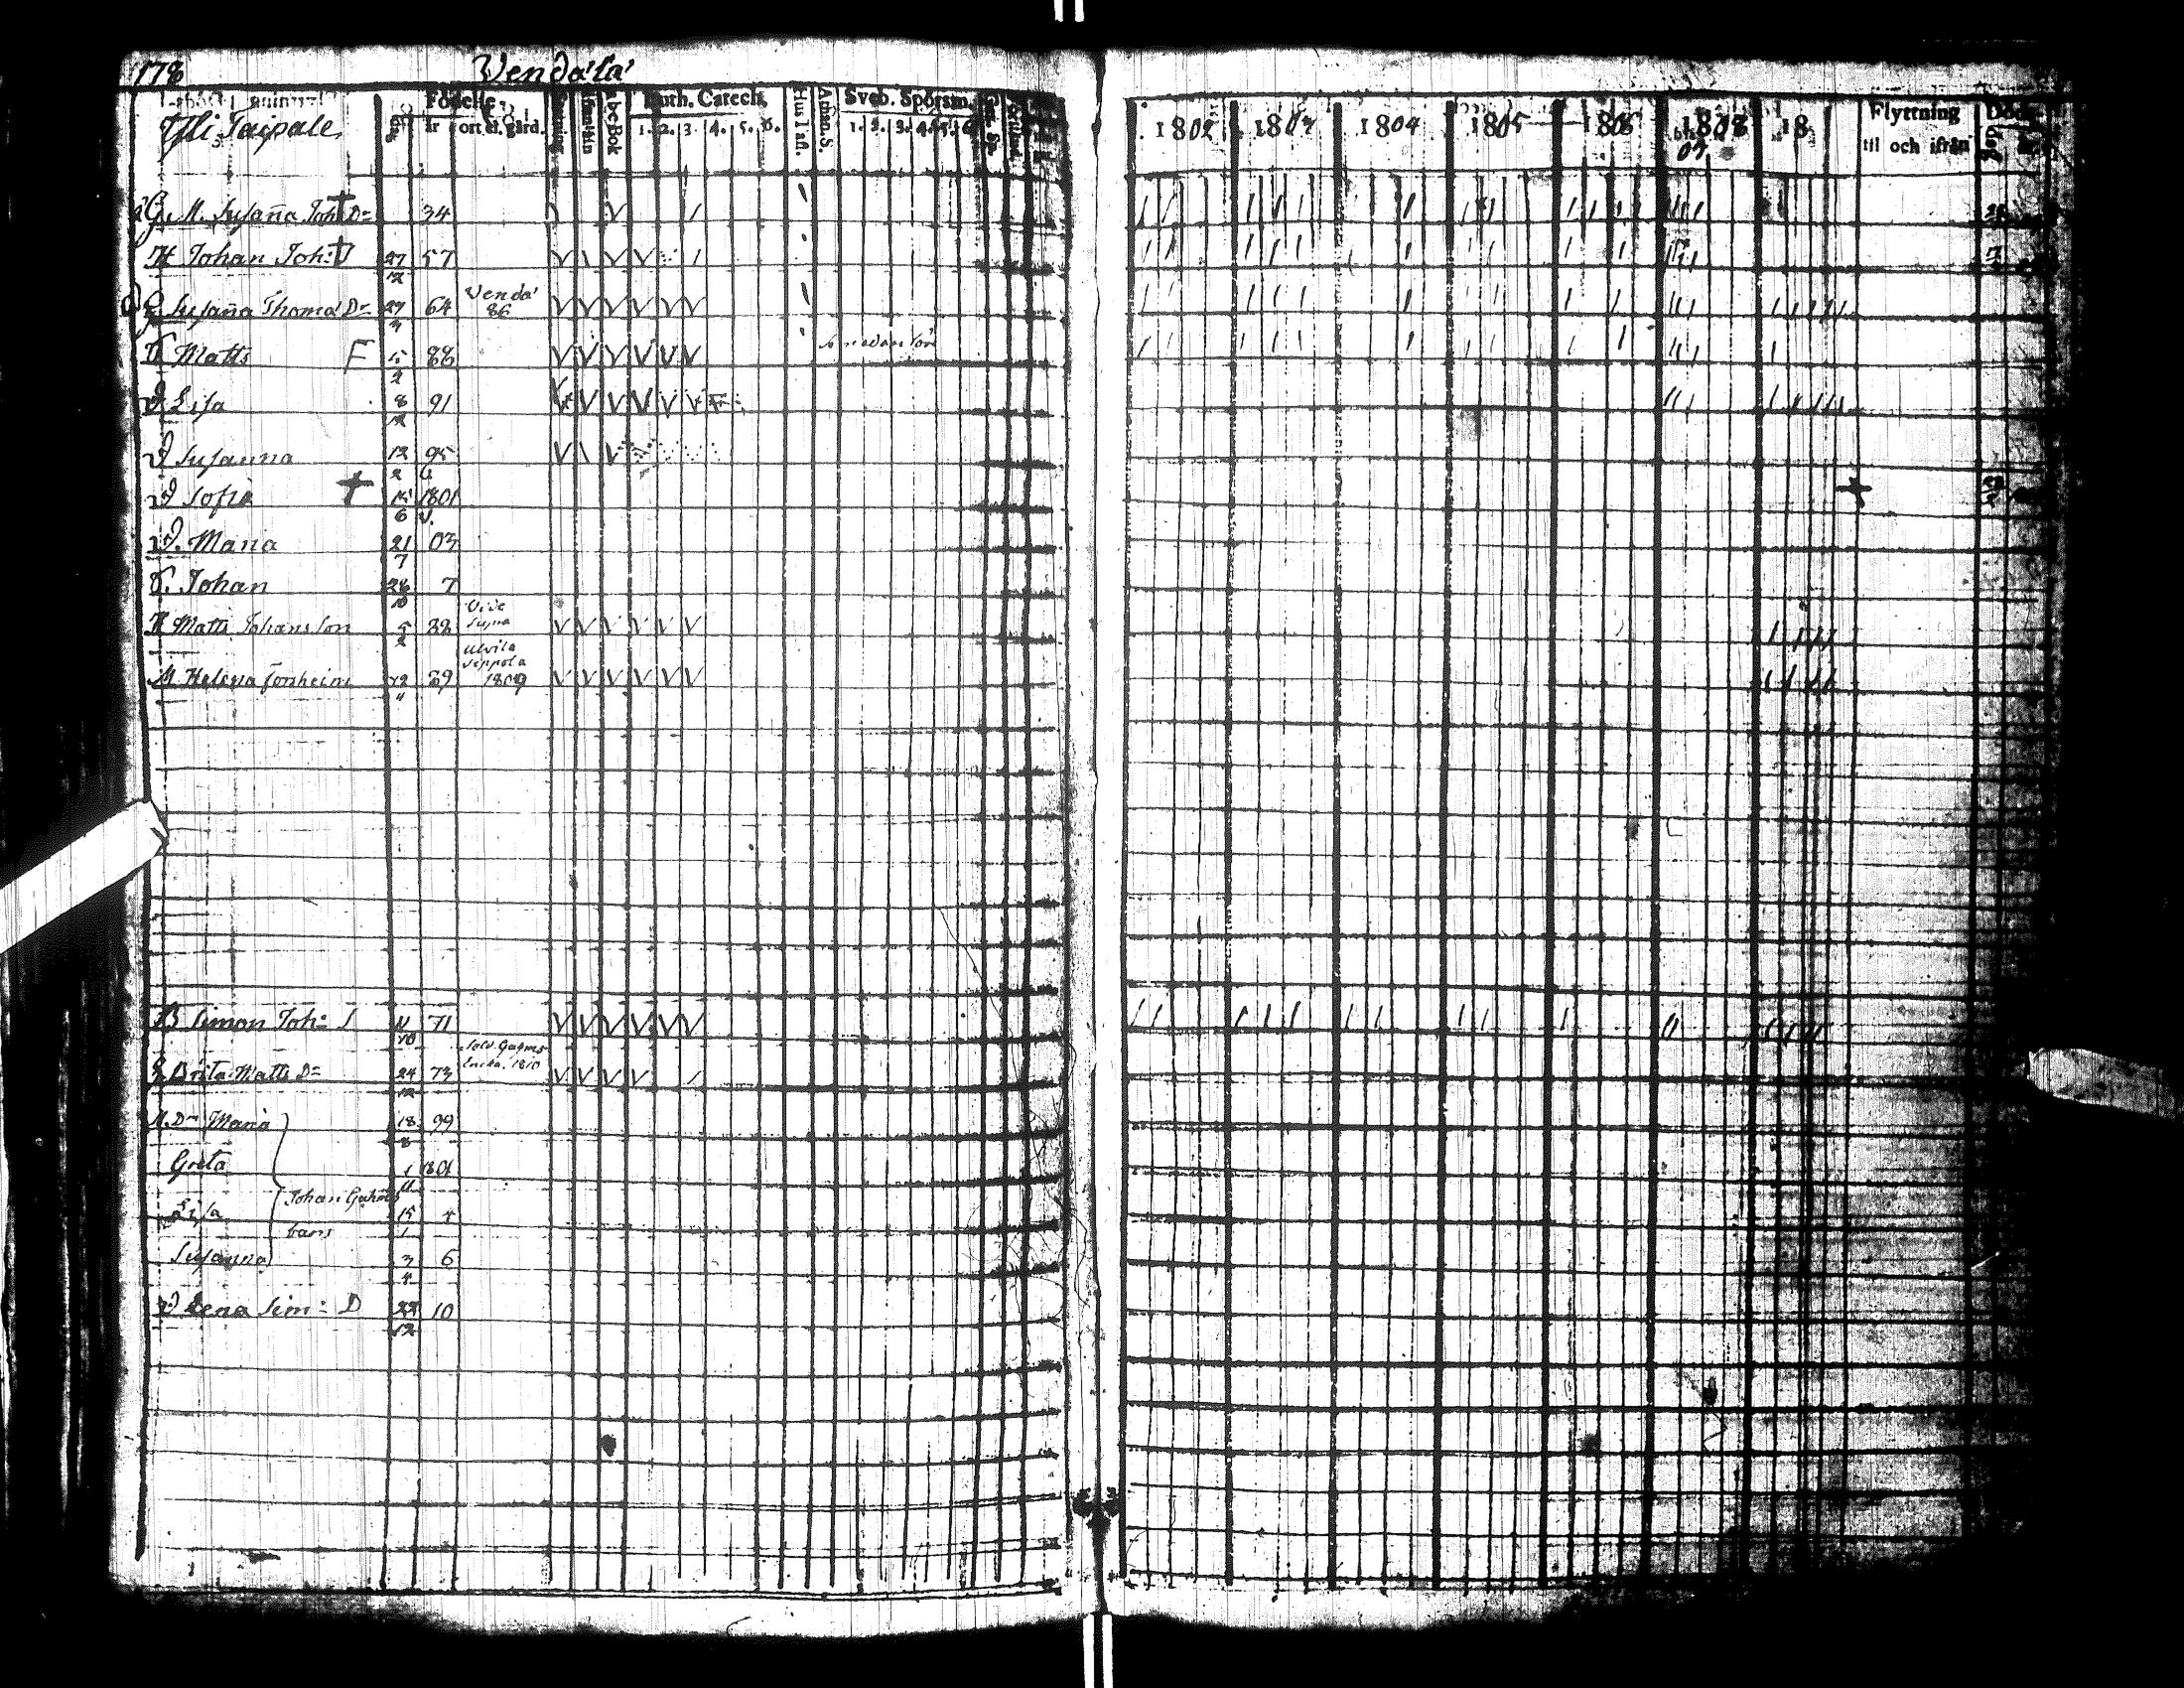 178 Vendälä
Födelse
Luth. Catech.
Sveb. Spörsm.
år ort el. gård.
abc Bok
1. 2. 3. 4. 5. 6.
Hus Tafl.
Athan. S.
1. 2. 3. 4. 5. 6.
1802 1803 1804 1805 1806 1808 18
07
Flyttning
til och ifrån
Död
Yli Taipale
G. M. Susaña Joh: D= 34
H Johan Joh: S 27/12 57
G Susaña Thomæ D= 27/3 64 Vendä 86
S Matts F 15/2 88
D Lisa 8/12 91
D Susanna 12/2 95
D Sofia 15/6 1801
D. Maria 21/7 03
S. Johan 26/10 7
H Matts Johans son 5/2 88 Vide supra
M Helena Fonheim 12/11 89 Ulvila Seppola 1809
B Simon Joh= S 11/10 71
G Brita Matts D= 24/12 73 1810
M. Dr Maria 18/8 99
Greta 1/11 1801
Johan
Lisa 15/1 4
barn
Susanna 3/4 6
D Lena Sim= D 22/12 10